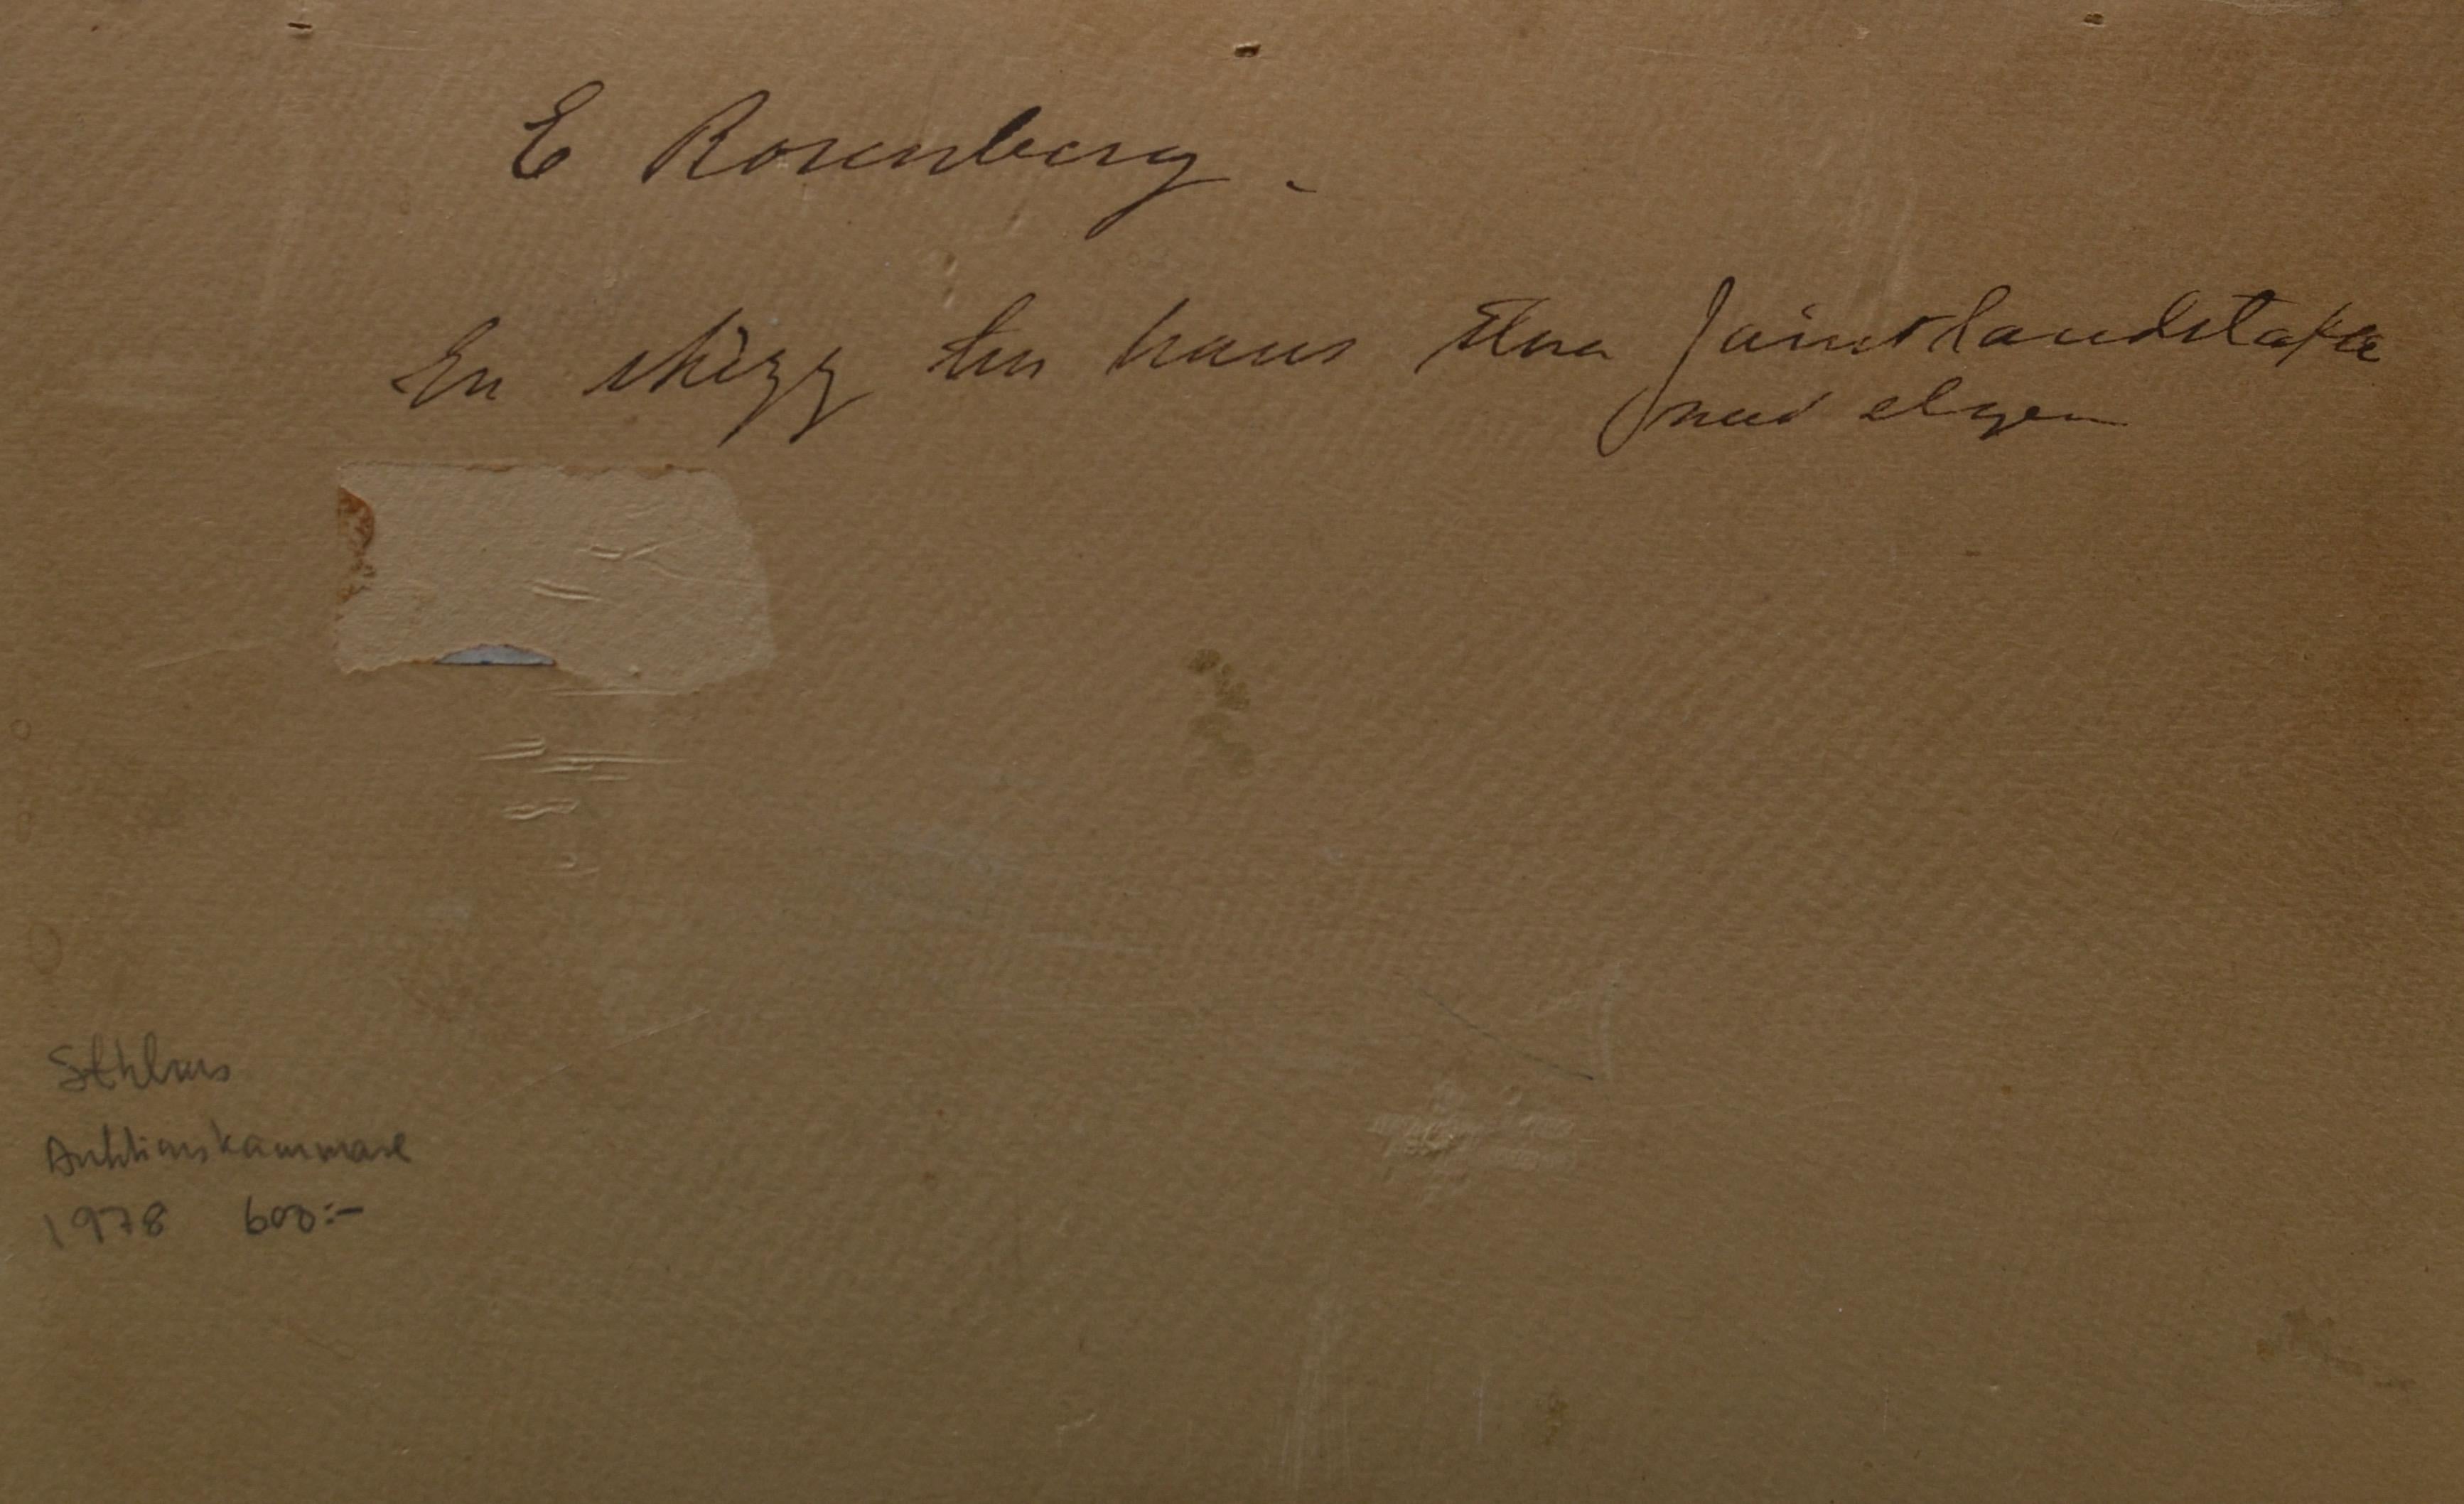 E Rosenberg.
En skizz till hans stora Jämtlandstafla
med elgen
Sthlms
Auktionskammare
1978 600:-